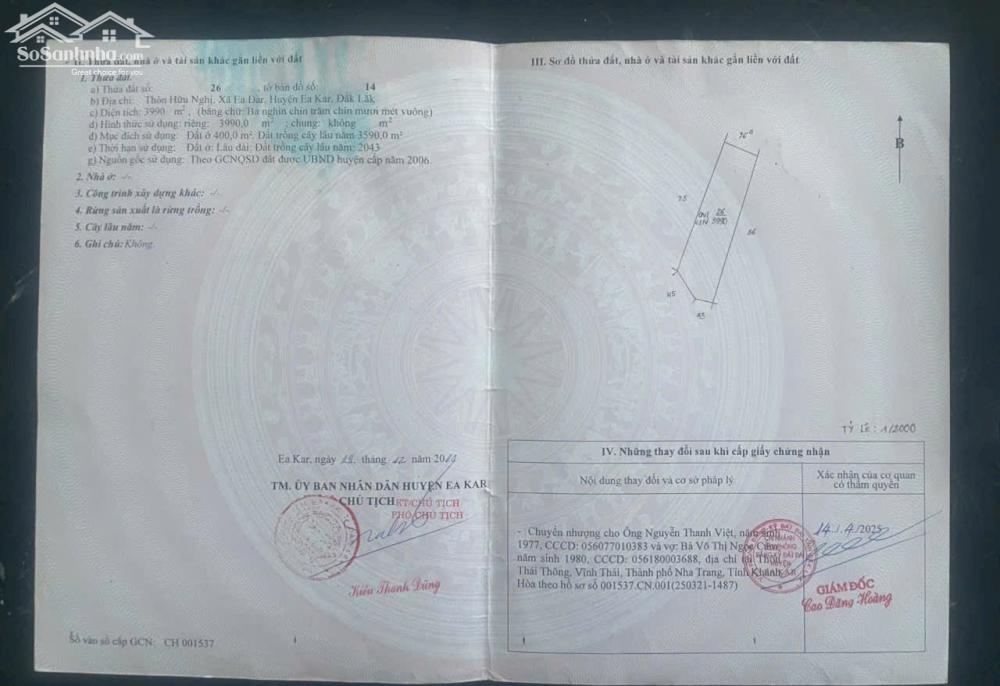 SoSanhnha.com
Great choice for you
II. Thửa đất, nhà ở và tài sản khác gắn liền với đất
1. Thửa đất:
a) Thửa đất số: 26 , tờ bản đồ số: 14
b) Địa chỉ: Thôn Hữu Nghị, Xã Ea Đar, Huyện Ea Kar, Đắk Lắk
c) Diện tích: 3990 m², (bằng chữ: Ba nghìn chín trăm chín mươi mét vuông)
d) Hình thức sử dụng: riêng: 3990,0 m² ; chung: không m²
đ) Mục đích sử dụng: Đất ở 400,0 m²; Đất trồng cây lâu năm 3590,0 m²
e) Thời hạn sử dụng: Đất ở: Lâu dài; Đất trồng cây lâu năm: 2043
g) Nguồn gốc sử dụng: Theo GCNQSD đất được UBND huyện cấp năm 2006.
2. Nhà ở: -/-
3. Công trình xây dựng khác: -/-
4. Rừng sản xuất là rừng trồng: -/-
5. Cây lâu năm: -/-
6. Ghi chú: Không.
Ea Kar, ngày tháng 12 năm
TM. ỦY BAN NHÂN DÂN HUYỆN EA KAR
CHỦ TỊCH KT.CHỦ TỊCH
PHÓ CHỦ TỊCH
Kiều Thanh Dũng
Số vào sổ cấp GCN: CH 001537
III. Sơ đồ thửa đất, nhà ở và tài sản khác gắn liền với đất
B
75
26
3990
86
45
13
TỶ LỆ: 1/2000
IV. Những thay đổi sau khi cấp giấy chứng nhận
Nội dung thay đổi và cơ sở pháp lý
Xác nhận của cơ quan
có thẩm quyền
- Chuyển nhượng cho Ông Nguyễn Thanh Việt, năm sinh
1977, CCCD: 056077010383 và vợ: Bà Võ Thị Ngọc
năm sinh 1980, CCCD: 056180003688, địa chỉ tại Thôn
Thái Thông, Vĩnh Thái, Thành phố Nha Trang, Tỉnh Khánh
Hòa theo hồ sơ số 001537.CN.001(250321-1487)
14/4/2025
GIÁM ĐỐC
Cao Đăng Hoàng